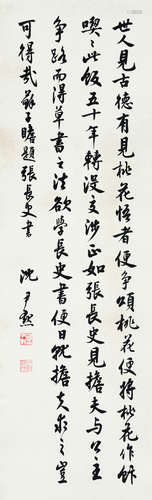 世人見古德有見桃花悟者便爭頌桃花便將桃花作飯
喫喫此飯五十年轉沒交涉正如張長史見擔夫與公主
爭路而得草書之法欲學長史書便日就擔夫求之豈
可得哉蘇子瞻題張長史書
沈尹默